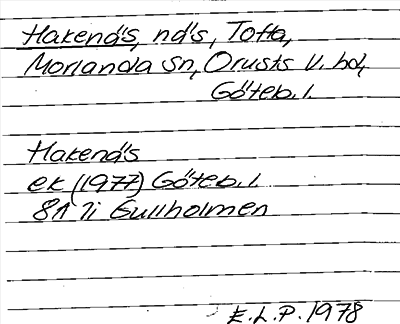 Hakenäs, nd's, Tofta,
Morlanda sn, Orusts V. hd,
Göteb. l.
Hakenäs
ek (1977) Göteb. l.
8A 7i Gullholmen
E.L.P. 1978